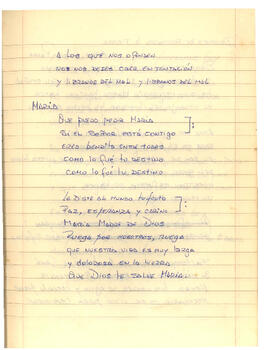 A LOS QUE NOS OFENDEN
NOS NOS DEJES CAER EN TENTACIÓN
Y LIBRANOS DEL MAL Y LIBRANOS DEL MAL
MARÍA
QUE PUEDO PEDIR MARÍA
SI EL SEÑOR ESTÁ CONTIGO
ERES BENDITA ENTRE TODAS
COMO LO FUÉ TU DESTINO
COMO LO FUE TU DESTINO
LE DISTE AL MUNDO
PAZ, ESPERANZA Y CARIÑO
MARÍA MADRE DE DIOS
RUEGA POR NOSOTROS, RUEGA
QUE NUESTRA VIDA ES MUY LARGA
Y DOLOROSA EN LA TIERRA
QUE DIOS TE SALVE MARÍA